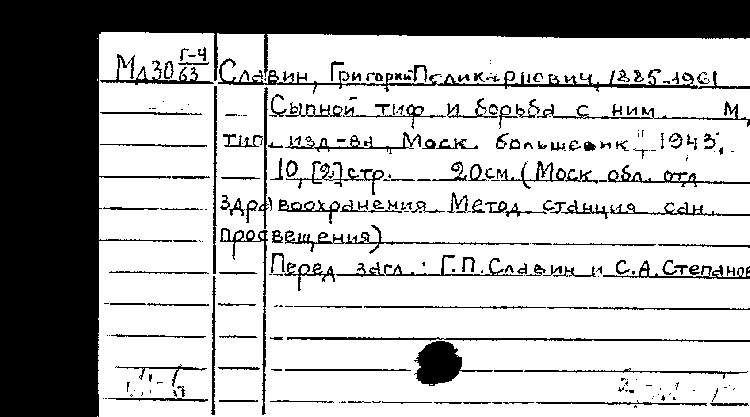 Мл30 Г-4/63 Славин, Григорий Поликарпович, 1885-1961
Сыпной тиф и борьба с ним. М.,
тип. изд-ва „Моск. большевик“, 1943.
10, [2] стр. 20 см. (Моск. обл. отд
здравоохранения. Метод. станция сан.
просвещения)
Перед загл.: Г.П. Славин и С.А. Степанов